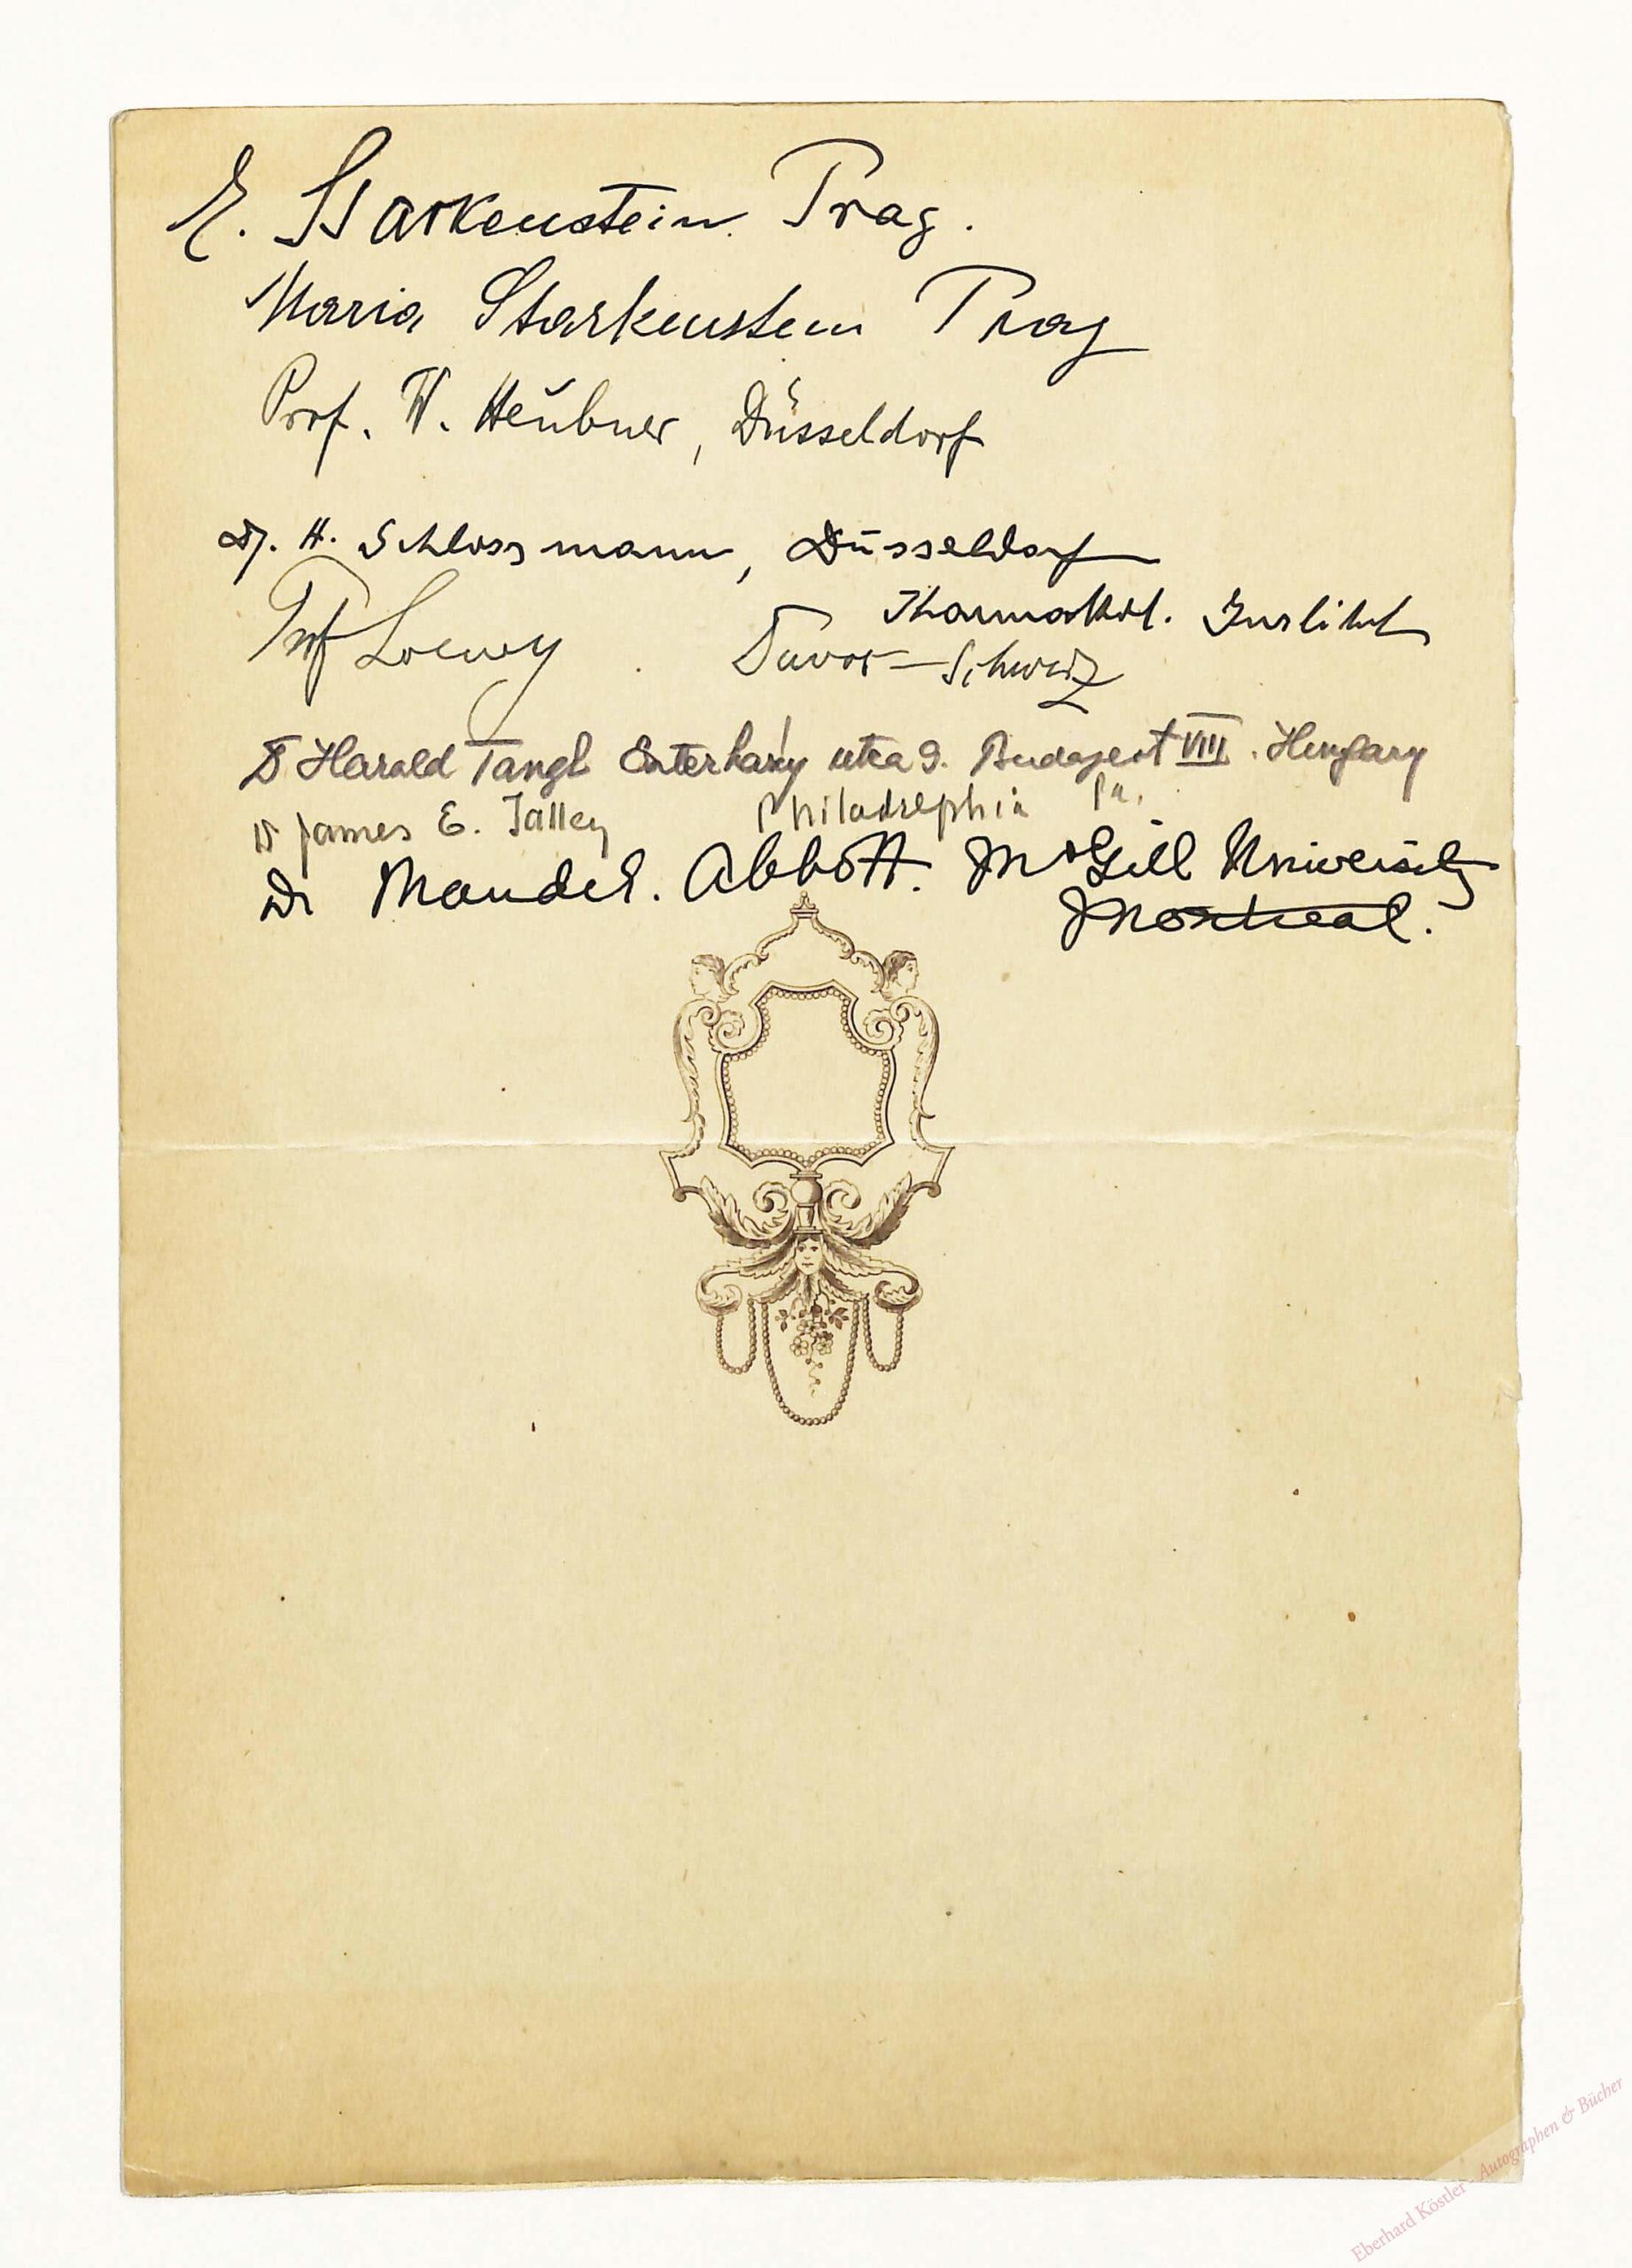 E. Starkenstein. Prag.
Maria Starkenstein Prag
Prof. W. Heubner, Düsseldorf
Dr. H. Schlossmann, Düsseldorf
Pharmakol. Institut
Prof Loewy . Davos – Schweiz
Dr Harald Tangl Esterházy utca 9. Budapest VIII. Hungary
Dr James E. Talley Philadelphia Pa.
Dr Maude E. Abbott. McGill University
Montreal.
Eberhard Köstler - Autographen & Bücher